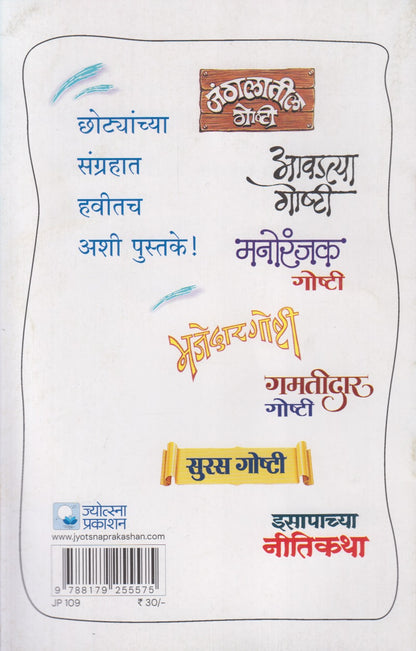 छोट्यांच्या
संग्रहात
हवीतच
अशी पुस्तके!
जंगलातील
गोष्टी
आवडत्या
गोष्टी
मनोरंजक
गोष्टी
मजेदार गोष्टी
गमतीदार
गोष्टी
सुरस गोष्टी
इसापाच्या
नीतिकथा
ज्योत्स्ना
प्रकाशन
www.jyotsnaprakashan.com
9 788179 255575
JP 109 ₹ 30/-